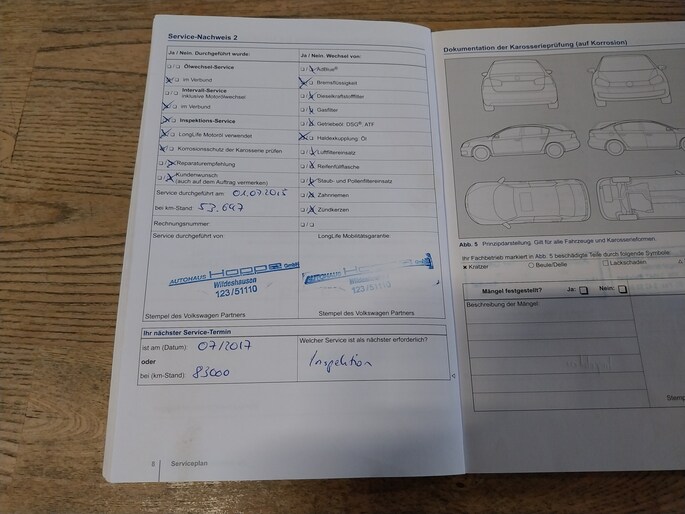 Service-Nachweis 2
Ja / Nein. Durchgeführt wurde:
Ölwechsel-Service
im Verbund
Intervall-Service
inklusive Motorölwechsel
im Verbund
Inspektions-Service
LongLife Motoröl verwendet
Korrosionsschutz der Karosserie prüfen
Reparaturempfehlung
Kundenwunsch
(auch auf dem Auftrag vermerken)
Service durchgeführt am
bei km-Stand: 53.647
Rechnungsnummer
Service durchgeführt von:
AUTOHAUS HOPPE GmbH
Wildeshausen
123/51110
Stempel des Volkswagen Partners
Ja / Nein. Wechsel von:
AdBlue®
Bremsflüssigkeit
Dieselkraftstofffilter
Gasfilter
Getriebeöl: DSG®, ATF
Haldexkupplung: Öl
Luftfiltereinsatz
Reifenfüllflasche
Staub- und Pollenfiltereinsatz
Zahnriemen
Zündkerzen
LongLife Mobilitätsgarantie:
AUTOHAUS
123/51110
Stempel des Volkswagen Partners
Ihr nächster Service-Termin
ist am (Datum): 07/2017
oder
bei (km-Stand): 83000
Welcher Service ist als nächster erforderlich?
Inspektion
8 Serviceplan
Dokumentation der Karosserieprüfung (auf Korrosion)
Abb. 5 Prinzipdarstellung. Gilt für alle Fahrzeuge und Karosserieformen.
Ihr Fachbetrieb markiert in Abb. 5 beschädigte Teile durch folgende Symbole:
× Kratzer
○ Beule/Delle
□ Lackschaden
Mängel festgestellt? Ja: Nein:
Beschreibung der Mängel: